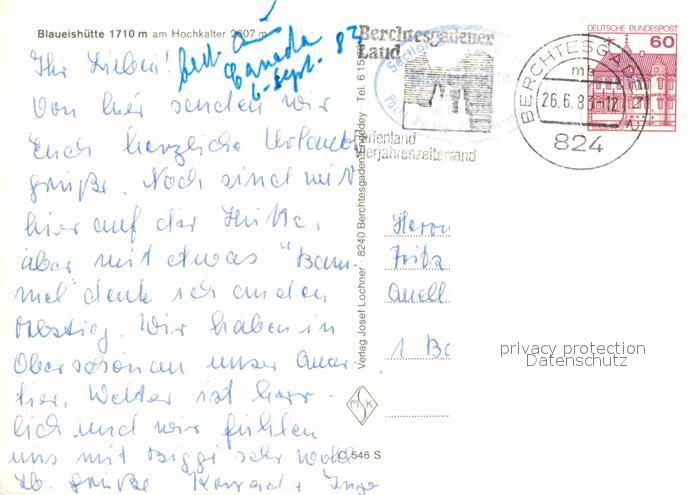 Blaueishütte 1710 m am Hochkalter 2607 m
Canada
6. Sept. 83
Ihr Lieben!
Von hier senden wir
Euch herzliche Urlaubs
grüße. Noch sind wir
hier auf der Hütte,
aber mit etwas "Bam-
mel" denk ich an den
Abstieg. Wir haben in
Oberschönau unser Quar-
tier. Wetter ist herr-
lich und wir fühlen
uns mit Biggi sehr wohl
Lb. Grüße Konrad + Inge
Verlag Josef Lochner 8240 Berchtesgaden Tel. 6
MSK
C 546 S
Berchtesgadener
Land
Ferienland
Vierjahreszeitenland
BERCHTESGADEN
mb
26.6.83-12
824
DEUTSCHE BUNDESPOST
60
Herrn
Fritz
Quell
1 Be
privacy protection
Datenschutz